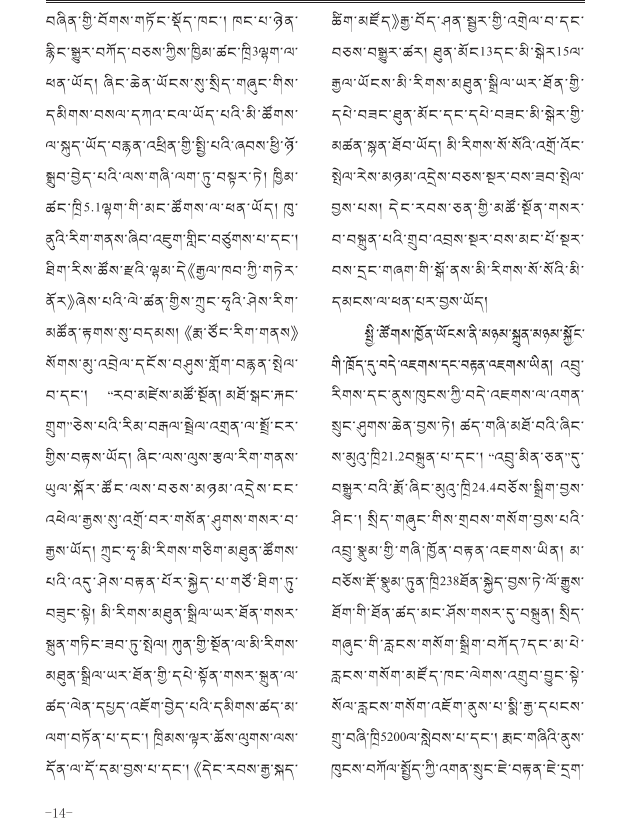 བཞིན་གྱི་བོགས་གཏོང་སྡོད་ཁང་། ཁང་པ་ཉེན་
རྙིང་སྒྱུར་བཀོད་བཅས་ཀྱིས་ཁྱིམ་ཚང་ཁྲི3ལྷག་ལ་
ཕན་ཡོད། ཞིང་ཆེན་ཡོངས་སུ་སྲིད་གཞུང་གིས་
དམིགས་བསལ་དཀའ་ངལ་ཡོད་པའི་མི་ཚོགས་
ལ་སྐུད་ཡོད་བརྙན་འཕྲིན་གྱི་སྤྱི་པའི་ཞབས་ཕྱི་ཉོ་
སྒྲུབ་བྱེད་པའི་ལས་གཞི་ལག་ཏུ་བསྟར་ཏེ། ཁྱིམ་
ཚང་ཁྲི5.1ལྷག་གི་མང་ཚོགས་ལ་ཕན་ཡོད། ཁུ་
ནུའི་རིག་གནས་ཞིབ་འཇུག་གླིང་བཙུགས་པ་དང་།
ཐིག་རིས་ཚོས་རྫའི་ལྷམ་དེ《རྒྱལ་ཁབ་ཀྱི་གཏེར་
ནོར》ཞེས་པའི་ལེ་ཚན་གྱིས་ཀྲུང་ཧྭའི་ཤེས་རིག་
མཚོན་རྟགས་སུ་བདམས། 《རྨ་ཙོང་རིག་གནས》
སོགས་མུ་འབྲེལ་དངོས་བཤུས་གློག་བརྙན་སྤེལ་
བ་དང་། “རབ་མཛེས་མཚོ་སྔོན། མཐོ་སྒང་རྐང་
གྲུག”ཅེས་པའི་རིམ་བརྒལ་སྦྲེལ་འགྲན་ལ་སྤྲོ་ངར་
གྱིས་བརྟས་ཡོད། ཞིང་ལས་ལུས་རྩལ་རིག་གནས་
ཡུལ་སྐོར་ཚོང་ལས་བཅས་མཉམ་འདྲེས་ངང་
འཕེལ་རྒྱས་སུ་འགྲོ་བར་གསོན་ཤུགས་གསར་བ་
རྒྱས་ཡོད། ཀྲུང་ཧྭ་མི་རིགས་གཅིག་མཐུན་ཚོགས་
པའི་འདུ་ཤེས་བརྟན་པོར་སྐྱེད་པ་གཙོ་ཐིག་ཏུ་
བཟུང་སྟེ། མི་རིགས་མཐུན་སྒྲིལ་ཡར་ཐོན་གསར་
སྐྲུན་གཏིང་ཟབ་ཏུ་སྤེལ། ཀུན་གྱི་སྔོན་ལ་མི་རིགས་
མཐུན་སྒྲིལ་ཡར་ཐོན་གྱི་དཔེ་སྟོན་གསར་སྐྲུན་ལ་
ཚད་ལེན་དཔྱད་འཇོག་བྱེད་པའི་དམིགས་ཚད་མ་
ལག་བཏོན་པ་དང་། ཁྲིམས་ལྟར་ཆོས་ལུགས་ལས་
དོན་ལ་དོ་དམ་བྱས་པ་དང་། 《དེང་རབས་རྒྱ་སྐད་
ཚིག་མཛོད》རྒྱ་བོད་ཤན་སྦྱར་གྱི་འགྲེལ་བ་དང་
བཅས་བསྒྱུར་ཚར། ཐུན་མོང13དང་མི་སྒེར15ལ་
རྒྱལ་ཡོངས་མི་རིགས་མཐུན་སྒྲིལ་ཡར་ཐོན་གྱི་
དཔེ་བཟང་ཐུན་མོང་དང་དཔེ་བཟང་མི་སྒེར་གྱི་
མཚན་སྙན་ཐོབ་ཡོད། མི་རིགས་སོ་སོའི་འགྲོ་འོང་
སྤེལ་རེས་མཉམ་འདྲེས་བཅས་སྔར་བས་ཟབ་སྤེལ་
བྱས་པས། དེང་རབས་ཅན་གྱི་མཚོ་སྔོན་གསར་
བ་བསྐྲུན་པའི་གྲུབ་འབྲས་སྔར་བས་མང་པོ་སྔར་
བས་དྲང་གཞག་གི་སྒོ་ནས་མི་རིགས་སོ་སོའི་མི་
དམངས་ལ་ཕན་པར་བྱས་ཡོད།
སྤྱི་ཚོགས་ཁྱོན་ཡོངས་ནི་མཉམ་སྐྲུན་མཉམ་སྐྱོང་
གི་ཁྲོད་དུ་བདེ་འཇགས་དང་བརྟན་འཇགས་ཡིན། འབྲུ་
རིགས་དང་ནུས་ཁུངས་ཀྱི་བདེ་འཇགས་ལ་འགན་
སྲུང་ཤུགས་ཆེན་བྱས་ཏེ། ཚད་གཞི་མཐོ་བའི་ཞིང་
ས་མུའུ་ཁྲི21.2བསྐྲུན་པ་དང་། “འབྲུ་མིན་ཅན”དུ་
བསྒྱུར་བའི་རྨོ་ཞིང་མུའུ་ཁྲི24.4བཅོས་སྒྲིག་བྱས་
ཤིང་། སྲིད་གཞུང་གིས་གྲབས་གསོག་བྱས་པའི་
འབྲུ་སྣུམ་གྱི་གཞི་ཁྱོན་བརྟན་འཇགས་ཡིན། མ་
བཅོས་རྡོ་སྣུམ་ཏུན་ཁྲི238ཐོན་སྐྱེད་བྱས་ཏེ་ལོ་རྒྱུས་
ཐོག་གི་ཐོན་ཚད་མང་ཤོས་གསར་དུ་བསྐྲུན། སྲིད་
གཞུང་གི་རླངས་གསོག་སྒྲིག་བཀོད7དང་མ་པེ་
རླངས་གསོག་མཛོད་ཁང་ལེགས་འགྲུབ་བྱུང་སྟེ་
སོལ་རླངས་གསོག་འཇོག་ནུས་པ་སྨི་རྒྱ་དཔངས་
གྲུ་བཞི་ཁྲི5200ལ་སླེབས་པ་དང་། རྨང་གཞིའི་ནུས་
ཁུངས་བཀོལ་སྤྱོད་ཀྱི་འགན་སྲུང་ཇེ་བརྟན་ཇེ་དྲག་
-14-